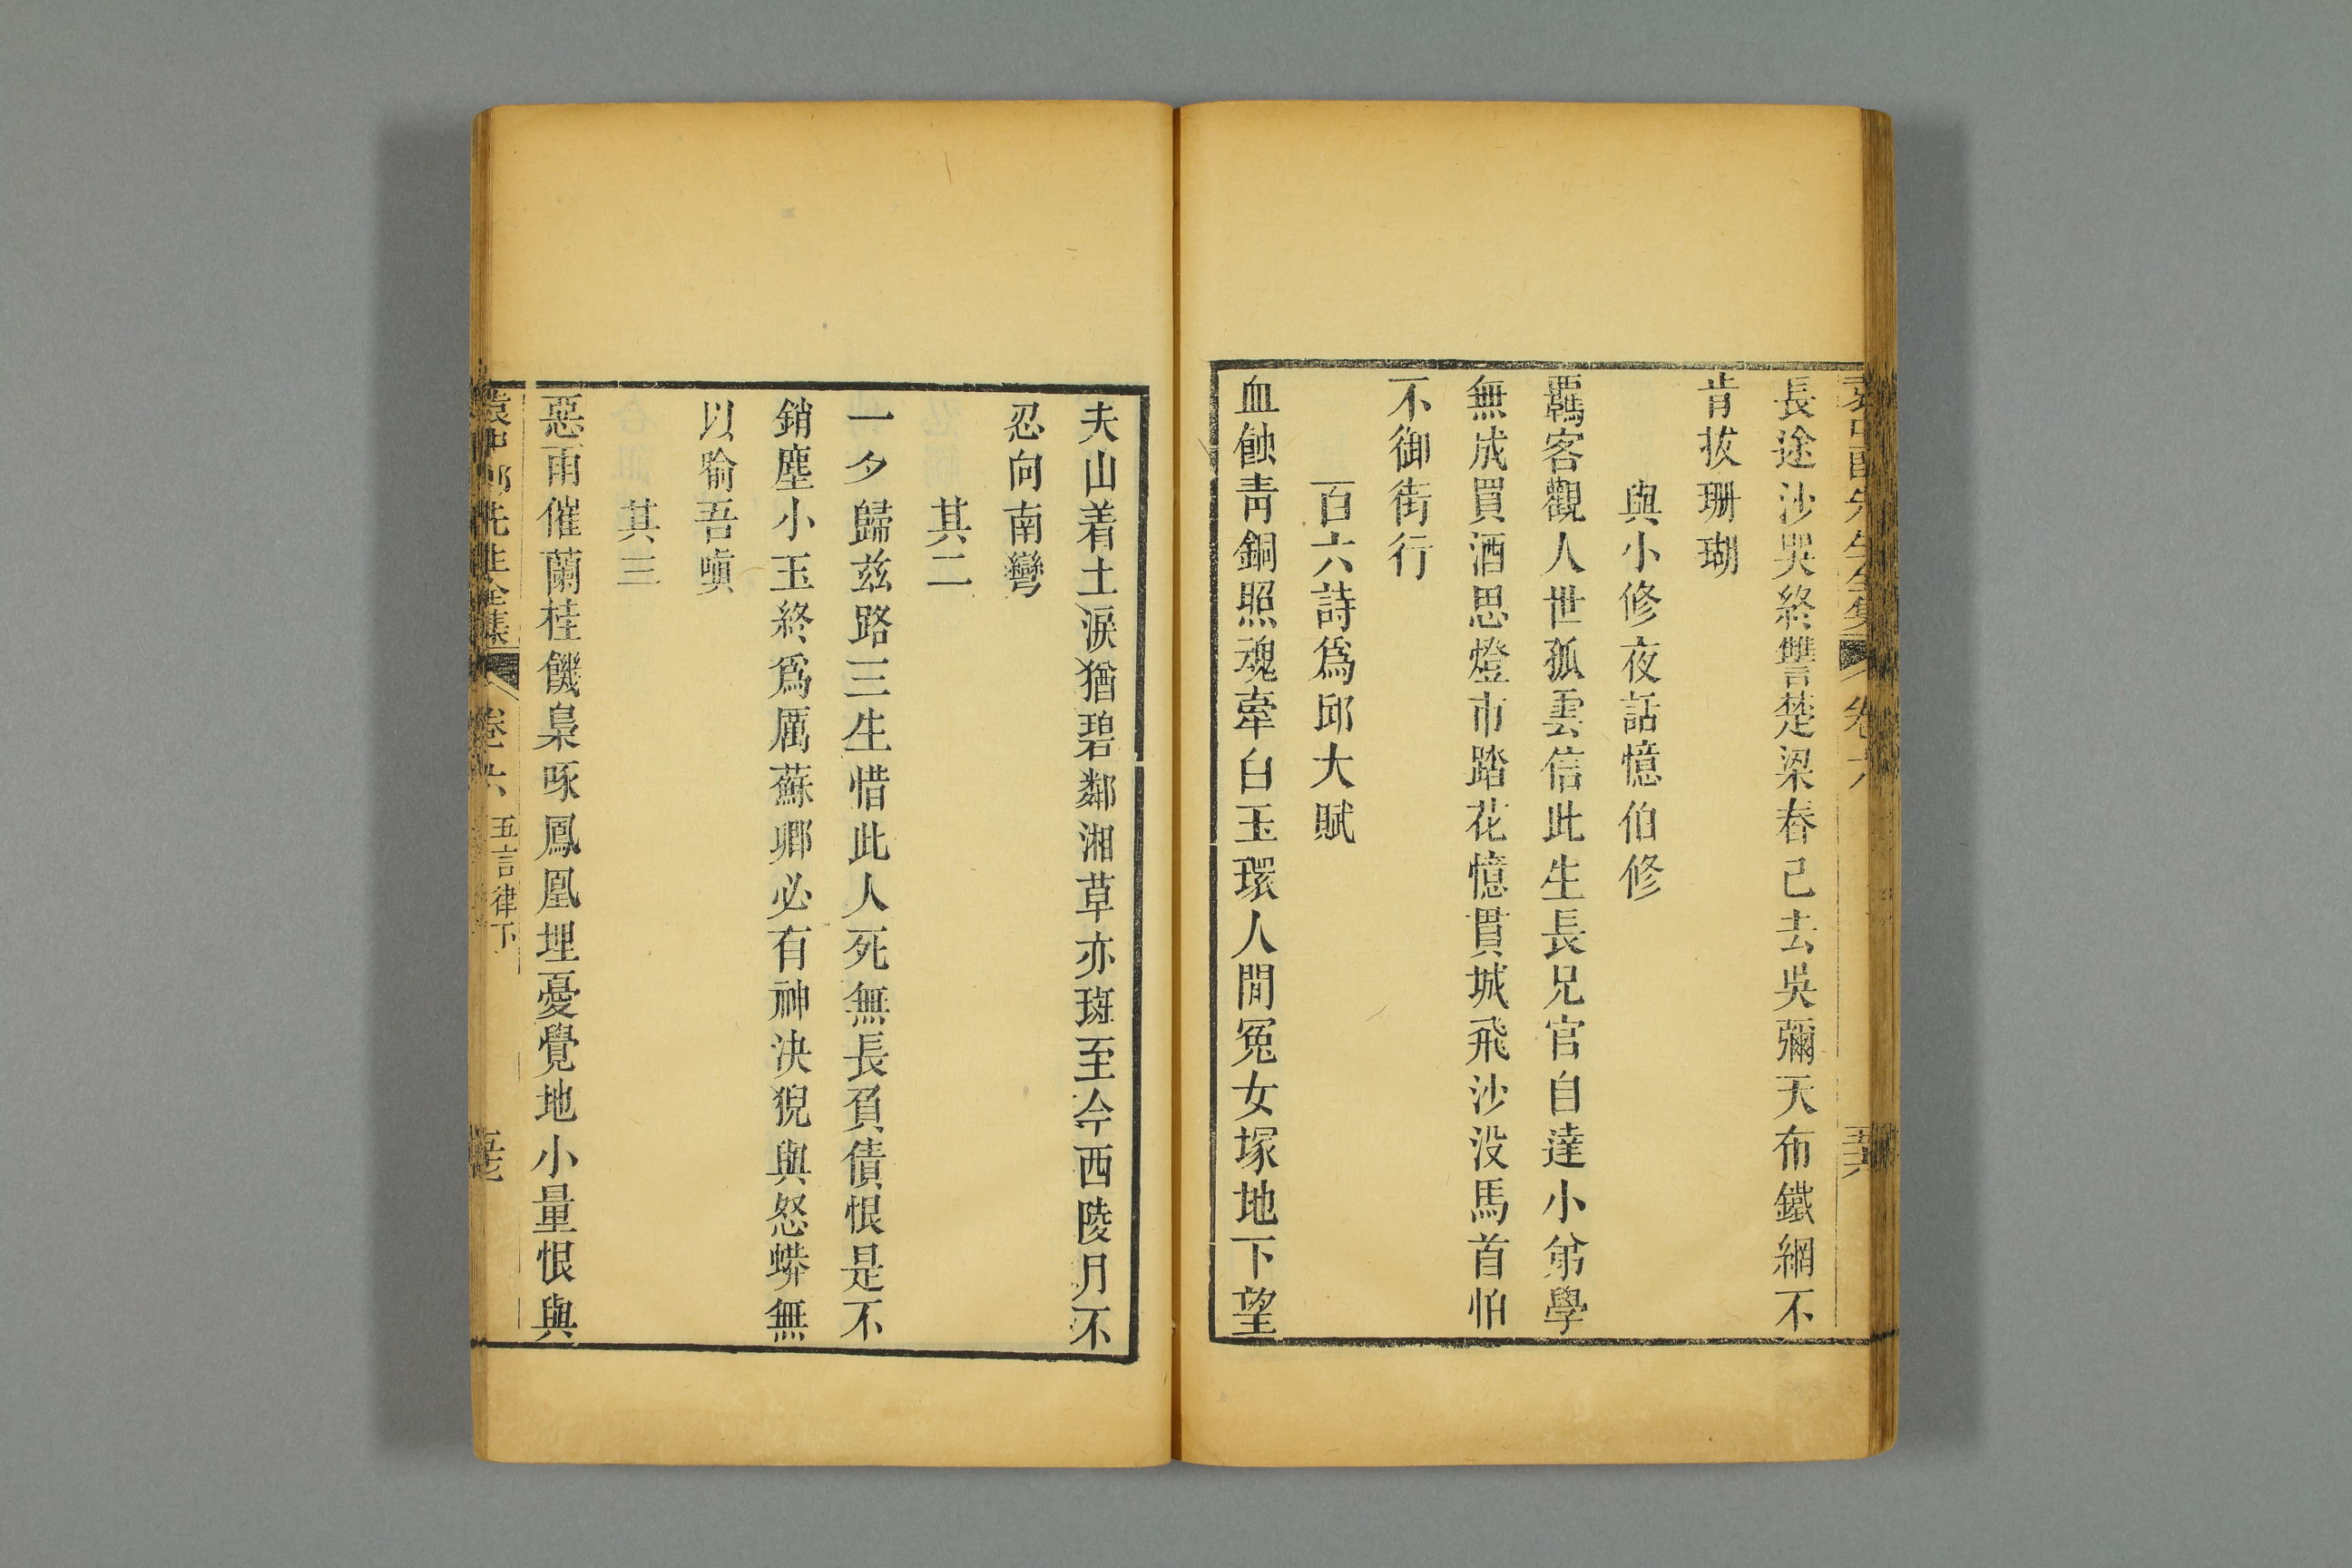 袁中郎先生全集 卷六 五十六
長途沙哭終讐楚梁春己去吳彌天布鐵網不
肯拔珊瑚
與小修夜話憶伯修
羈客觀人世孤雲信此生長兄官自達小弟學
無成買酒思燈市踏花憶貫城飛沙没馬首怕
不御街行
百六詩爲邱大賦
血蝕靑銅照魂牽白玉環人間冤女塚地下望
夫山着土淚猶碧鄰湘草亦斑至今西陵月不
忍向南彎
其二
一夕歸茲路三生惜此人死無長負債恨是不
銷塵小玉終爲厲蘇卿必有神決猊與怒蟒無
以喻吾嗔
其三
惡雨催蘭桂饑梟啄鳳凰埋憂覺地小量恨與
袁中郎先生全集 卷六 五言律下